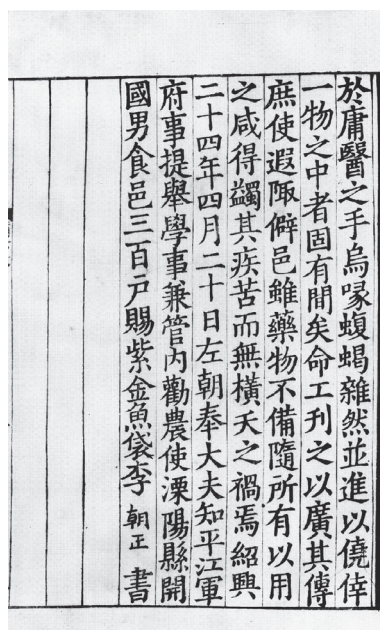 於庸醫之手烏喙蝮蝎雜然並進以僥倖
一物之中者固有間矣命工刊之以廣其傳
庶使遐陬僻邑雖藥物不備隨所有以用
之咸得蠲其疾苦而無橫夭之禍焉紹興
二十四年四月二十日左朝奉大夫知平江軍
府事提舉學事兼管內勸農使溧陽縣開
國男食邑三百戶賜紫金魚袋李朝正書